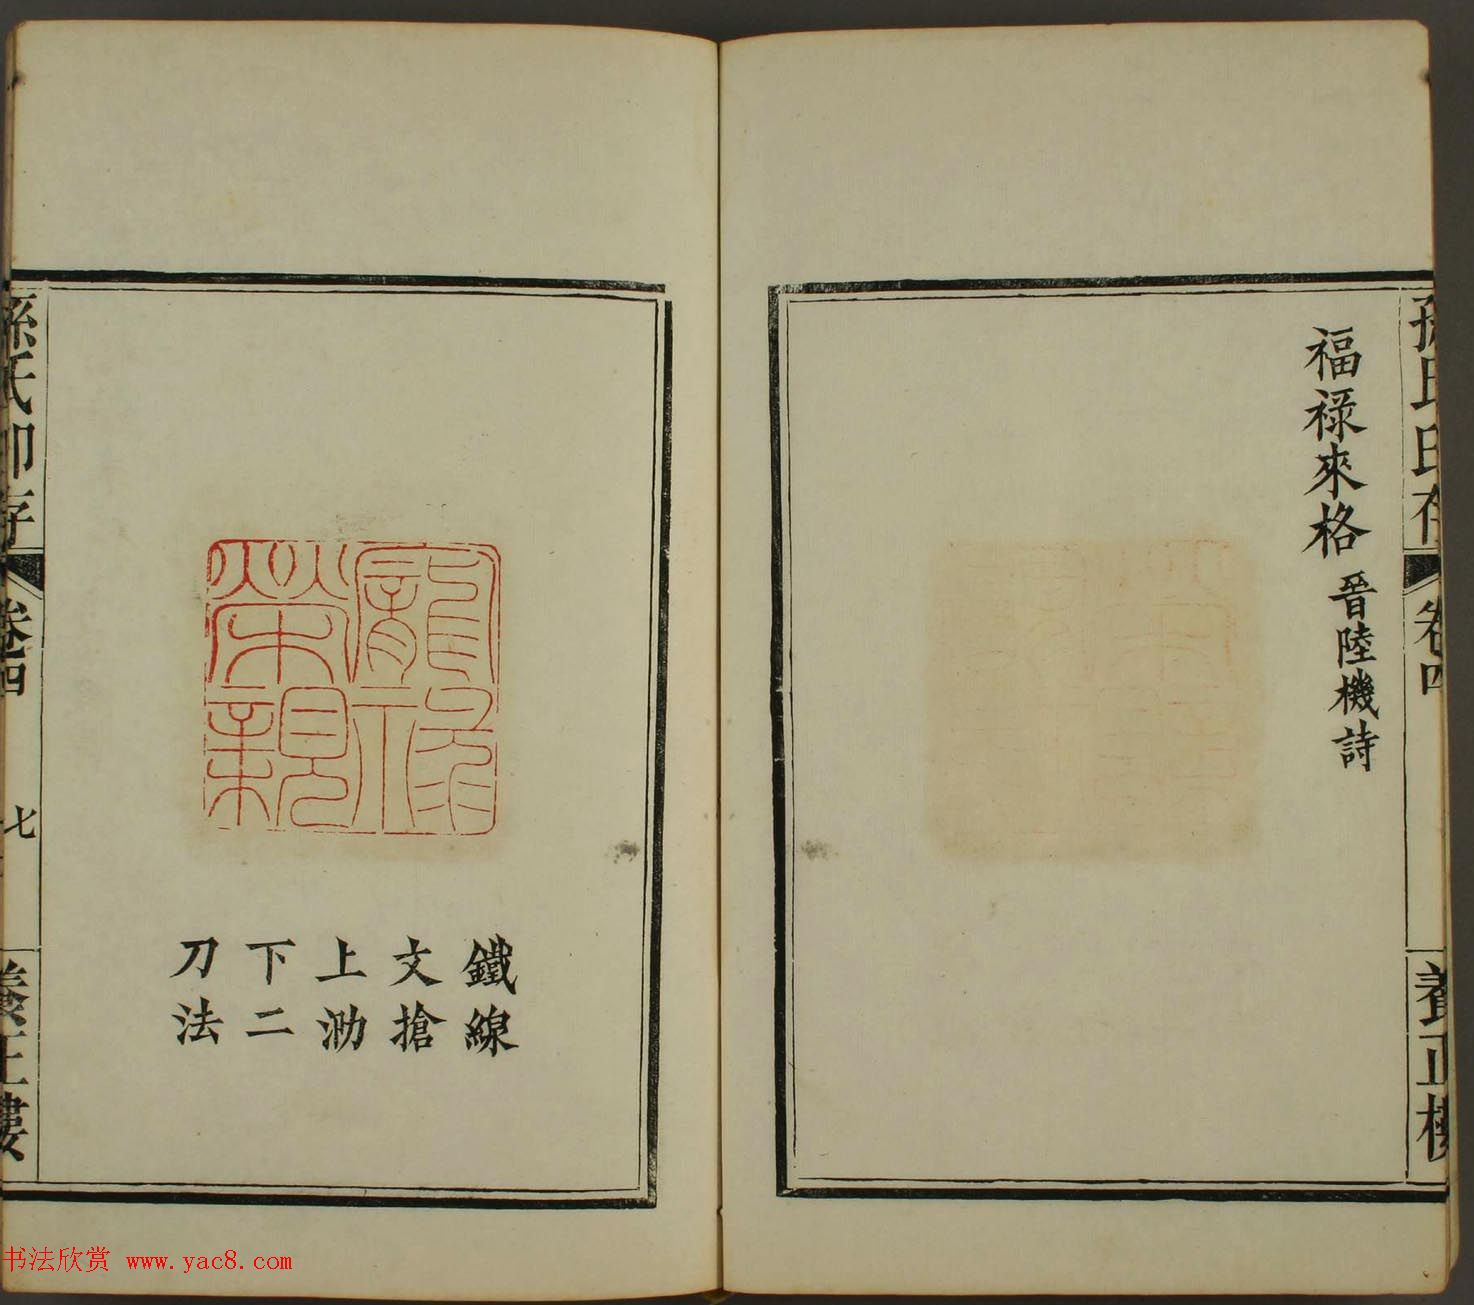 孫氏印存 卷四 養正樓
福祿來格 晉陸機詩
榮親
鐵線
文搶
上泐
下二
刀法
孫氏印存 卷四 七 養正樓
书法欣赏 www.yac8.com